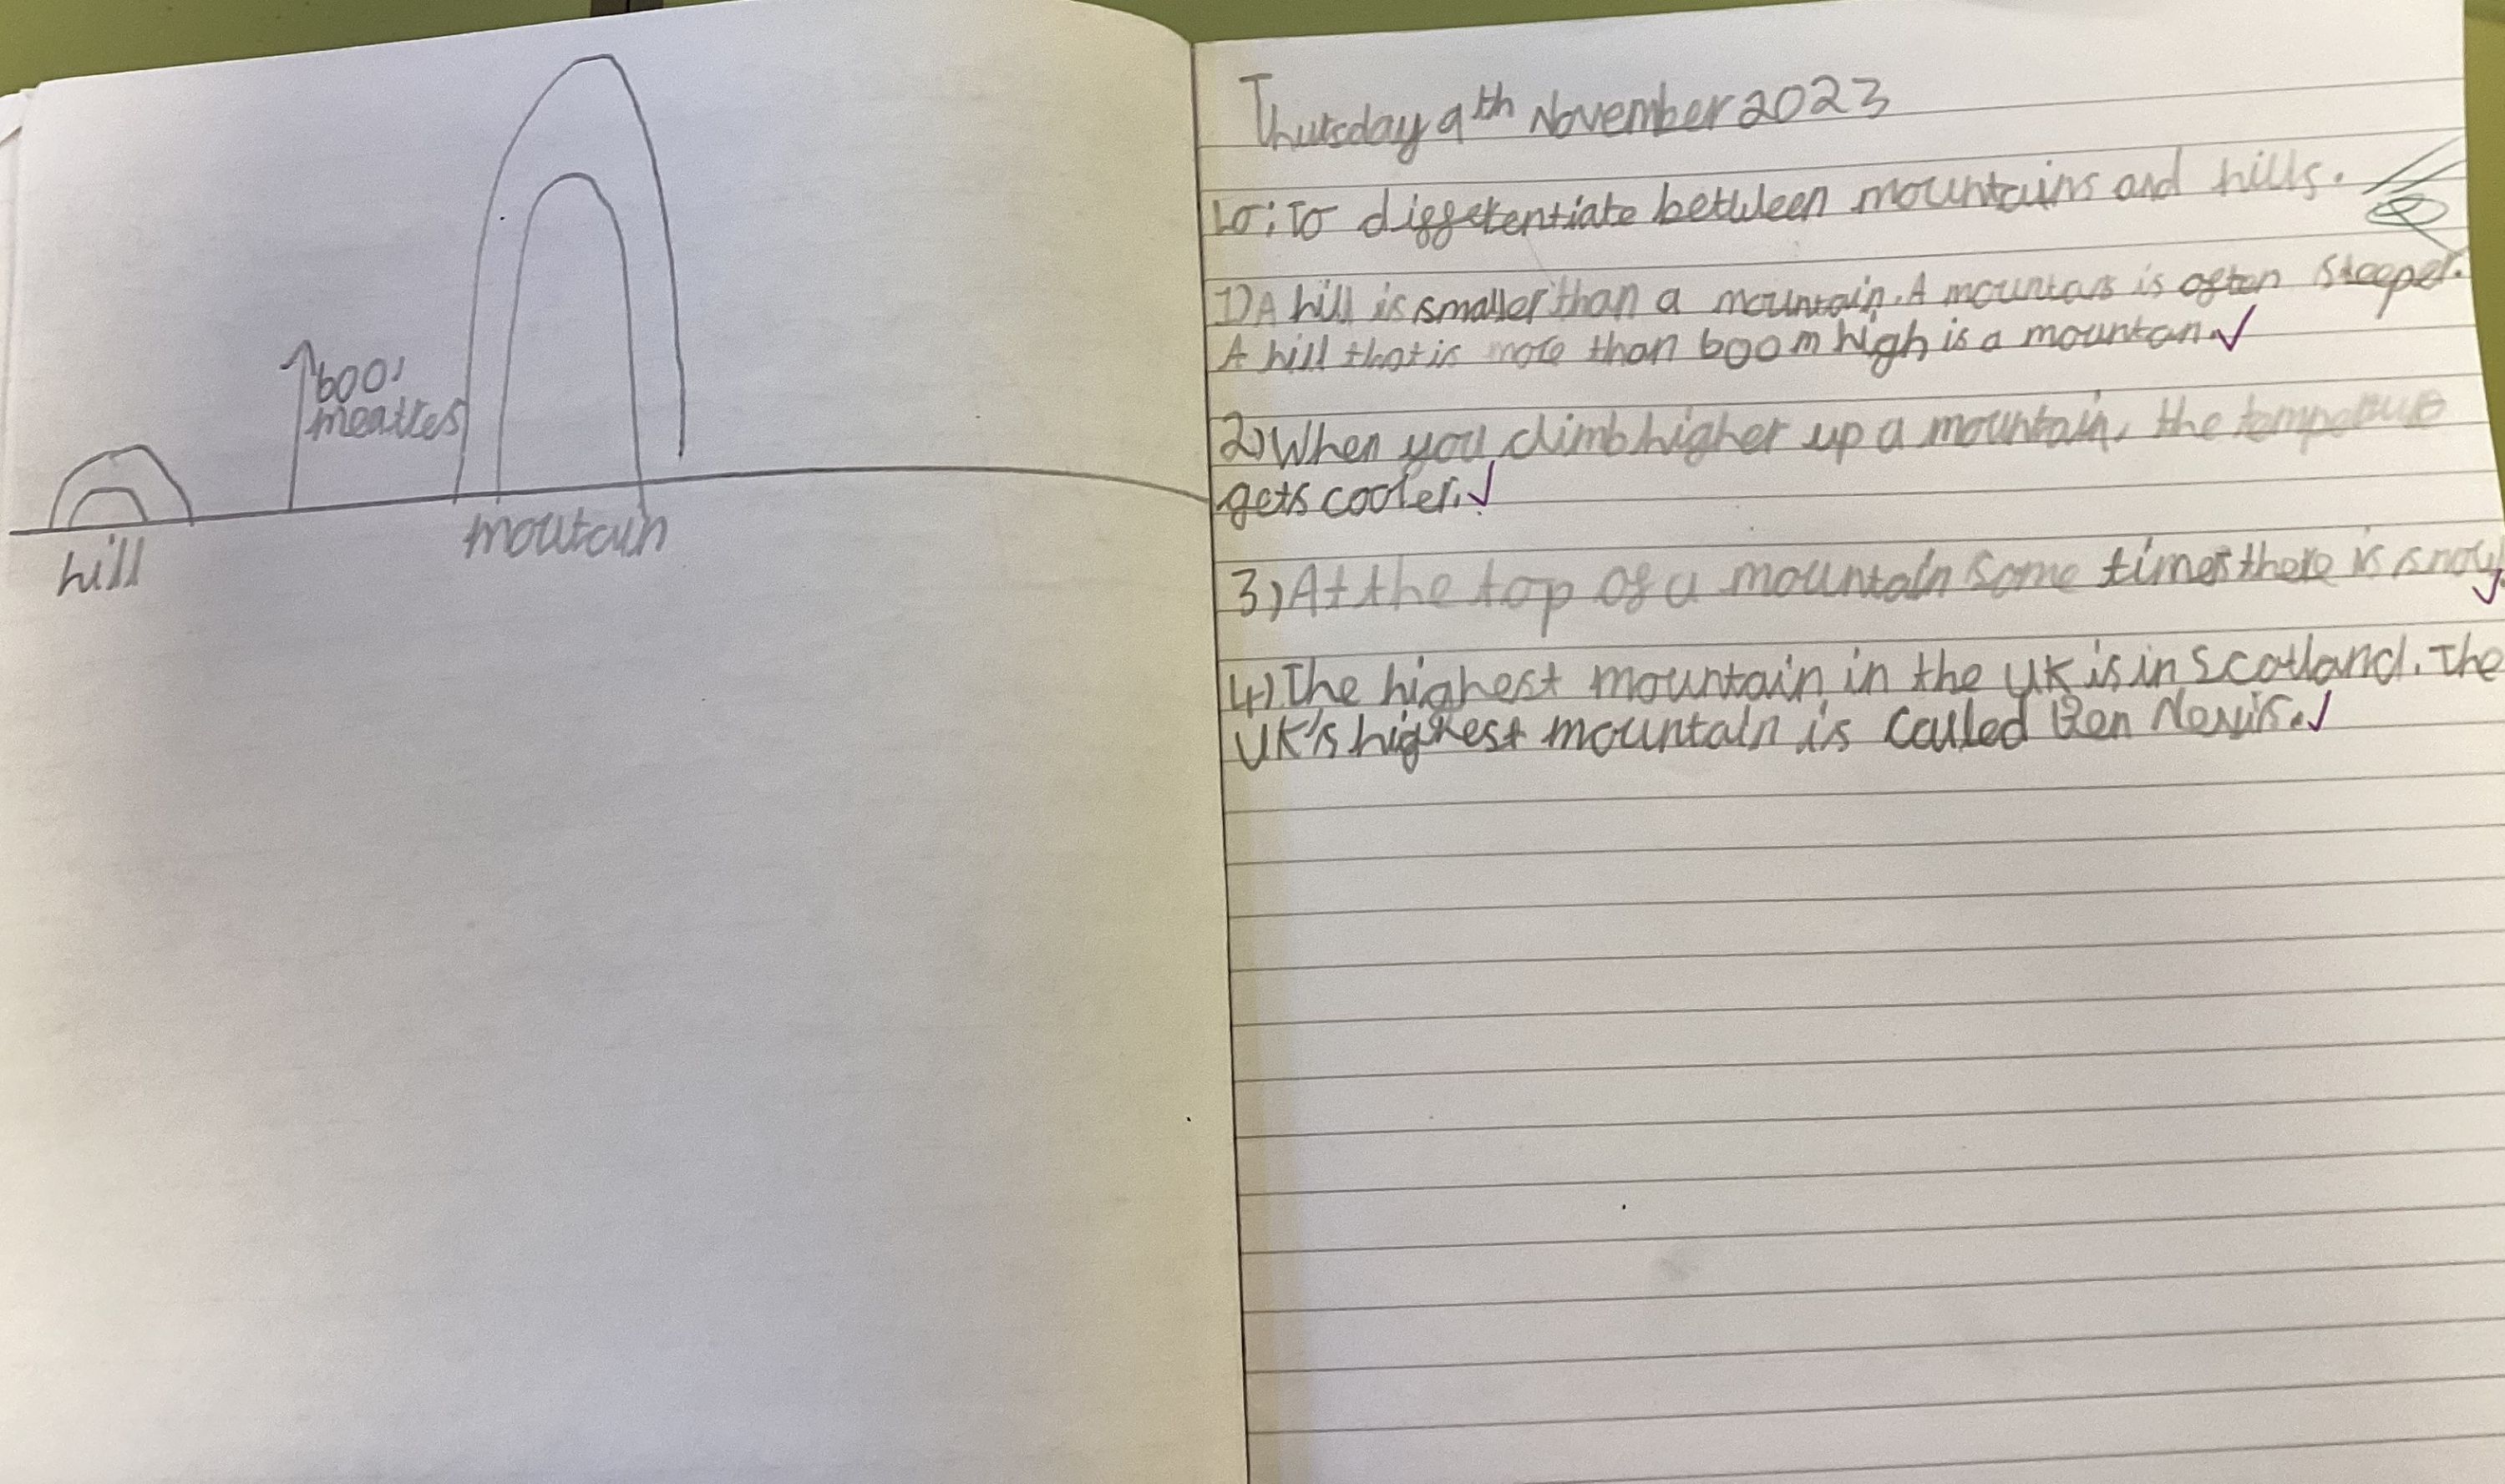 600
meatres
hill
moutain
Thursday 9th November 2023
LO: To differentiate between mountains and hills.
1) A hill is smaller than a mountain. A mountais is often steeper.
A hill that is more than 600m high is a mountan.
2) When you climb higher up a mountain, the
gets cooler.
3) At the top of a mountain some times there is snow.
4) The highest mountain in the UK is in Scotland. The
UK's highest mountain is called Ben Nevis.